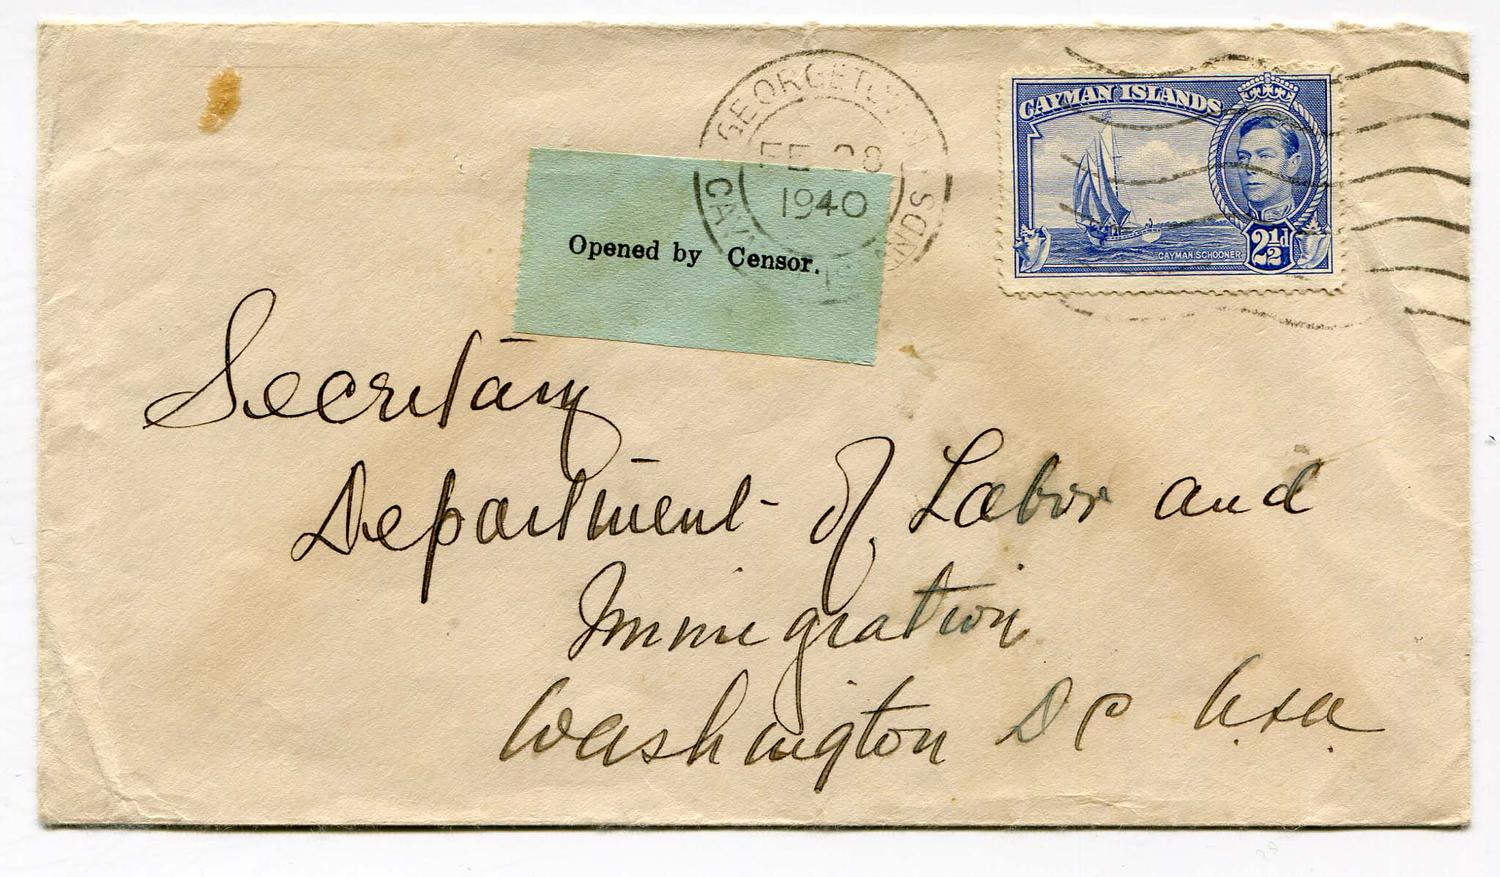 GEORGETOWN
FE 28
1940
CAYMAN ISLANDS
CAYMAN SCHOONER
2½d
Opened by Censor.
Secretary
Department of Labor and
Immigration
Washington D C U.S.A.